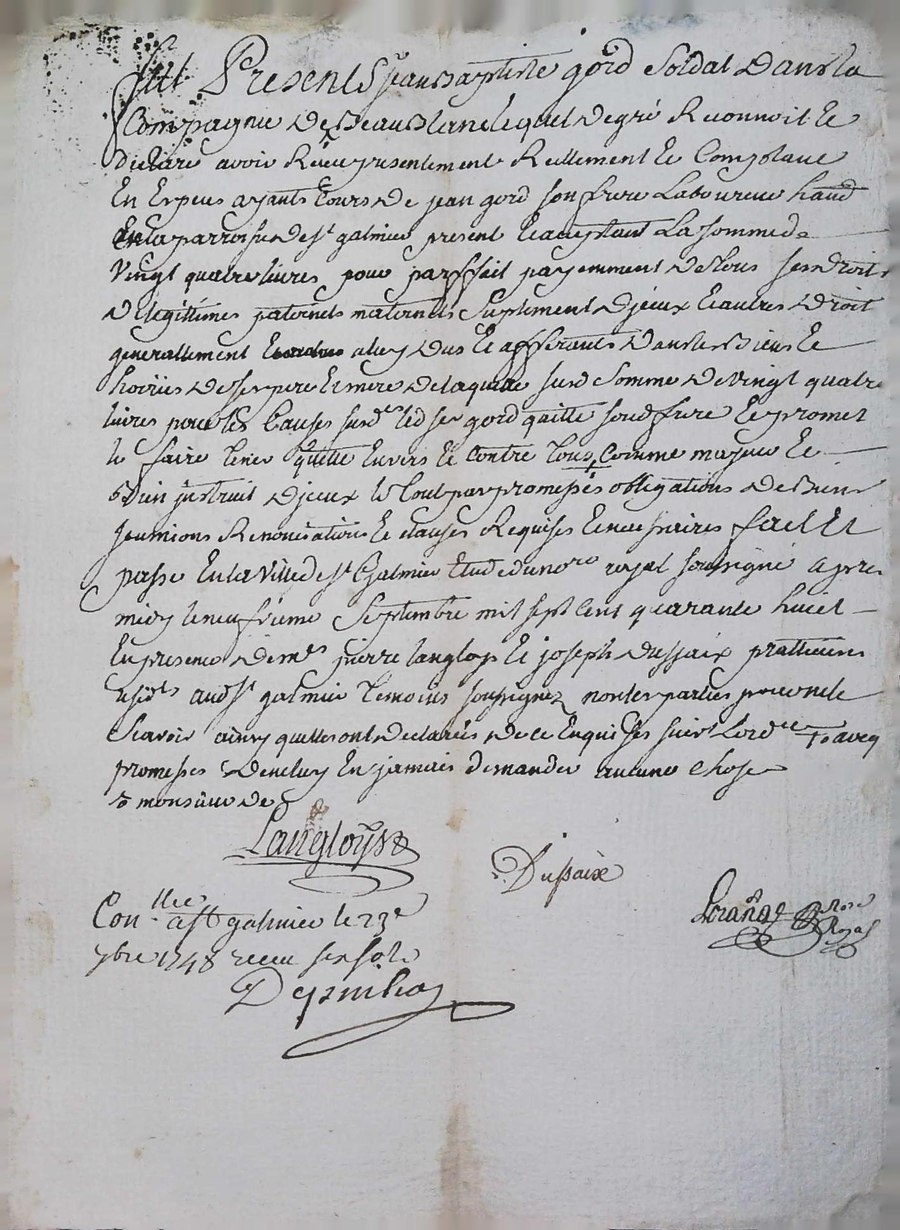 fut Present Sr jean Baptiste gord Soldat Dans la
Compagnie de Beau lequel de gré Reconnoit Et
Declare avoir Reçeu presentement Reellement Et Comptant
En Especes ayants Cours de jean gord son frere Laboureur
En la parroisse de st galmier present Et acceptant La somme de
Vingt quatre livres pour parffait payemment de tous ses droits
de legitimes paternels maternels Suplement d'jceux Et autres droits
generallement a luy dus Et afferants dans les Biens Et
hoiries de ses pere Et mere de laquelle susd somme de Vingt quatre
livres pour les Causes susdes led sr gord quitte sond frere Et promet
le faire tenir quitte Envers Et Contre tous Comme majeur Et
Bien jnstruit d'jceux le tout par promesses obligations de Biens
soumissions Renonciations Et clauses Requises Et necessaires fait Et
passé En la Ville de st Galmier Etude du nore royal soussigné apres
midy le neufvieme Septembre mil sept Cent quarante huict
En presence de mes pierre langloys Et joseph dussaix pratticiens
residts aud st galmier temoins soussignez non les parties pour ne le
Scavoir ainsy quelles ont declarées de ce Enquises suivt Lordce avecq
promesses den luy En jamais demander aucune chose
monsieur de
Langloys
Dussaix
Conllé a st galmier le 23e
7bre 1748 receu six sols
nore
Royal